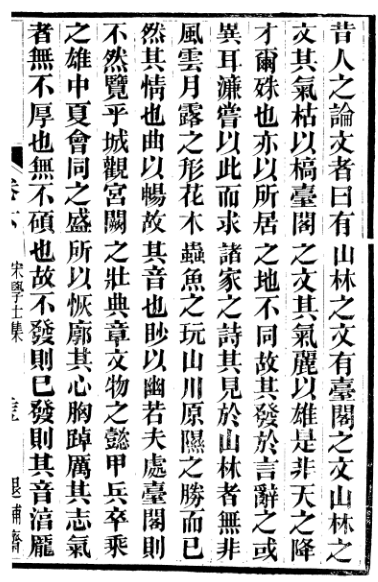 昔人之論文者曰有山林之文有臺閣之文山林之
文其氣枯以槁臺閣之文其氣麗以雄是非天之降
才爾殊也亦以所居之地不同故其發於言辭之或
異耳濂嘗以此而求諸家之詩其見於山林者無非
風雲月露之形花木蟲魚之玩山川原隰之勝而已
然其情也曲以暢故其音也眇以幽若夫處臺閣則
不然覽乎城觀宮闕之壯典章文物之懿甲兵卒乘
之雄中夏會同之盛所以恢廓其心胸踔厲其志氣
者無不厚也無不碩也故不發則已發則其音淯龐
宋學士集
退補齋